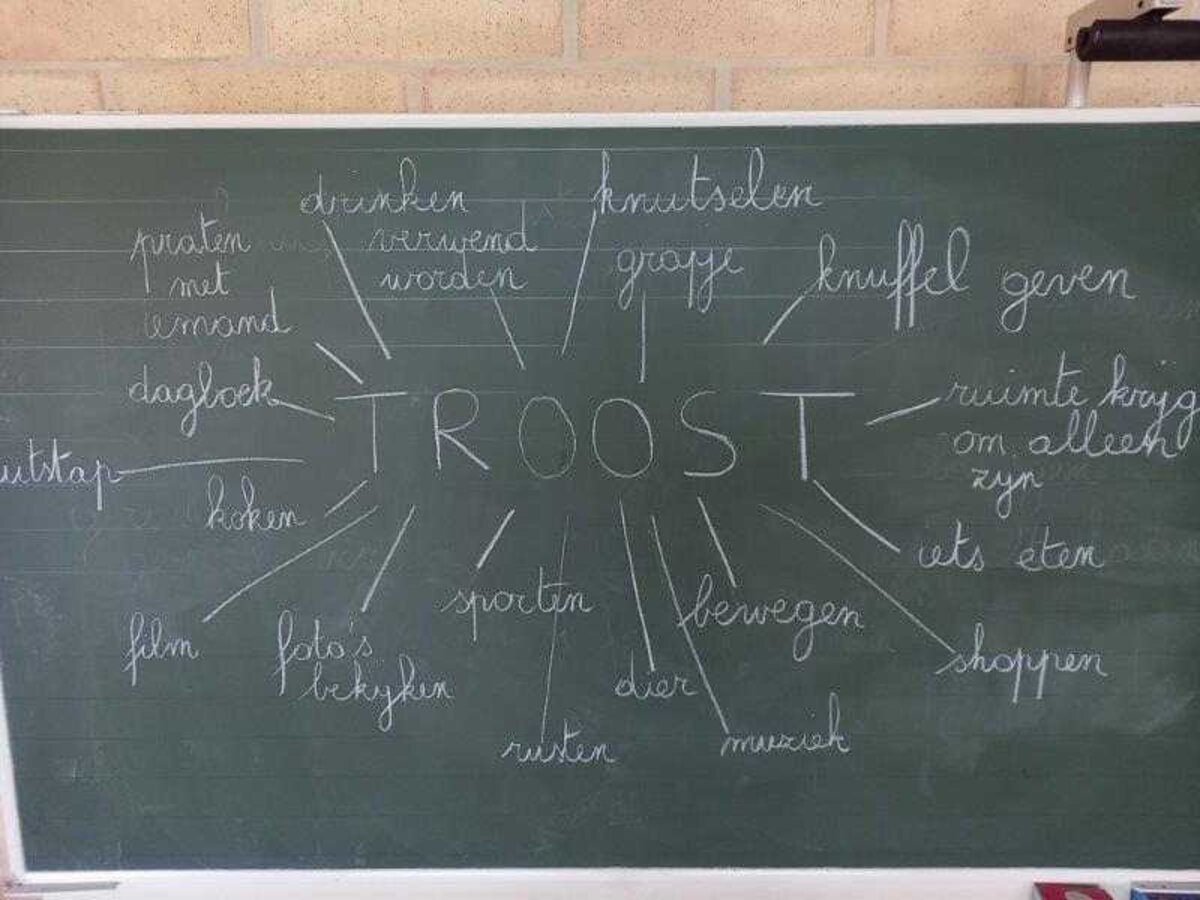 drunken
knutselen
praten
met
iemand
verwend
worden
grapje
knuffel geven
dagboek
TROOST
ruimte krijg
om alleen
zijn
uitstap
koken
iets eten
film
foto's
bekijken
sporten
bewegen
shoppen
dier
rusten
muziek